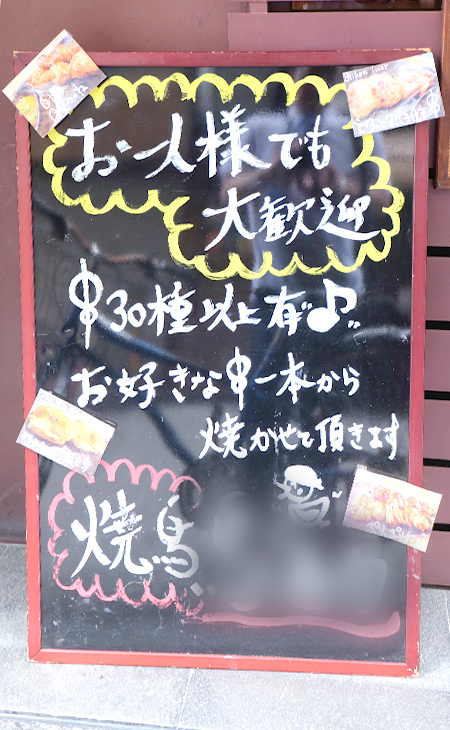 お一人様でも
大歓迎
串30種以上有♪
お好きな串一本から
焼かせて頂きます
焼鳥